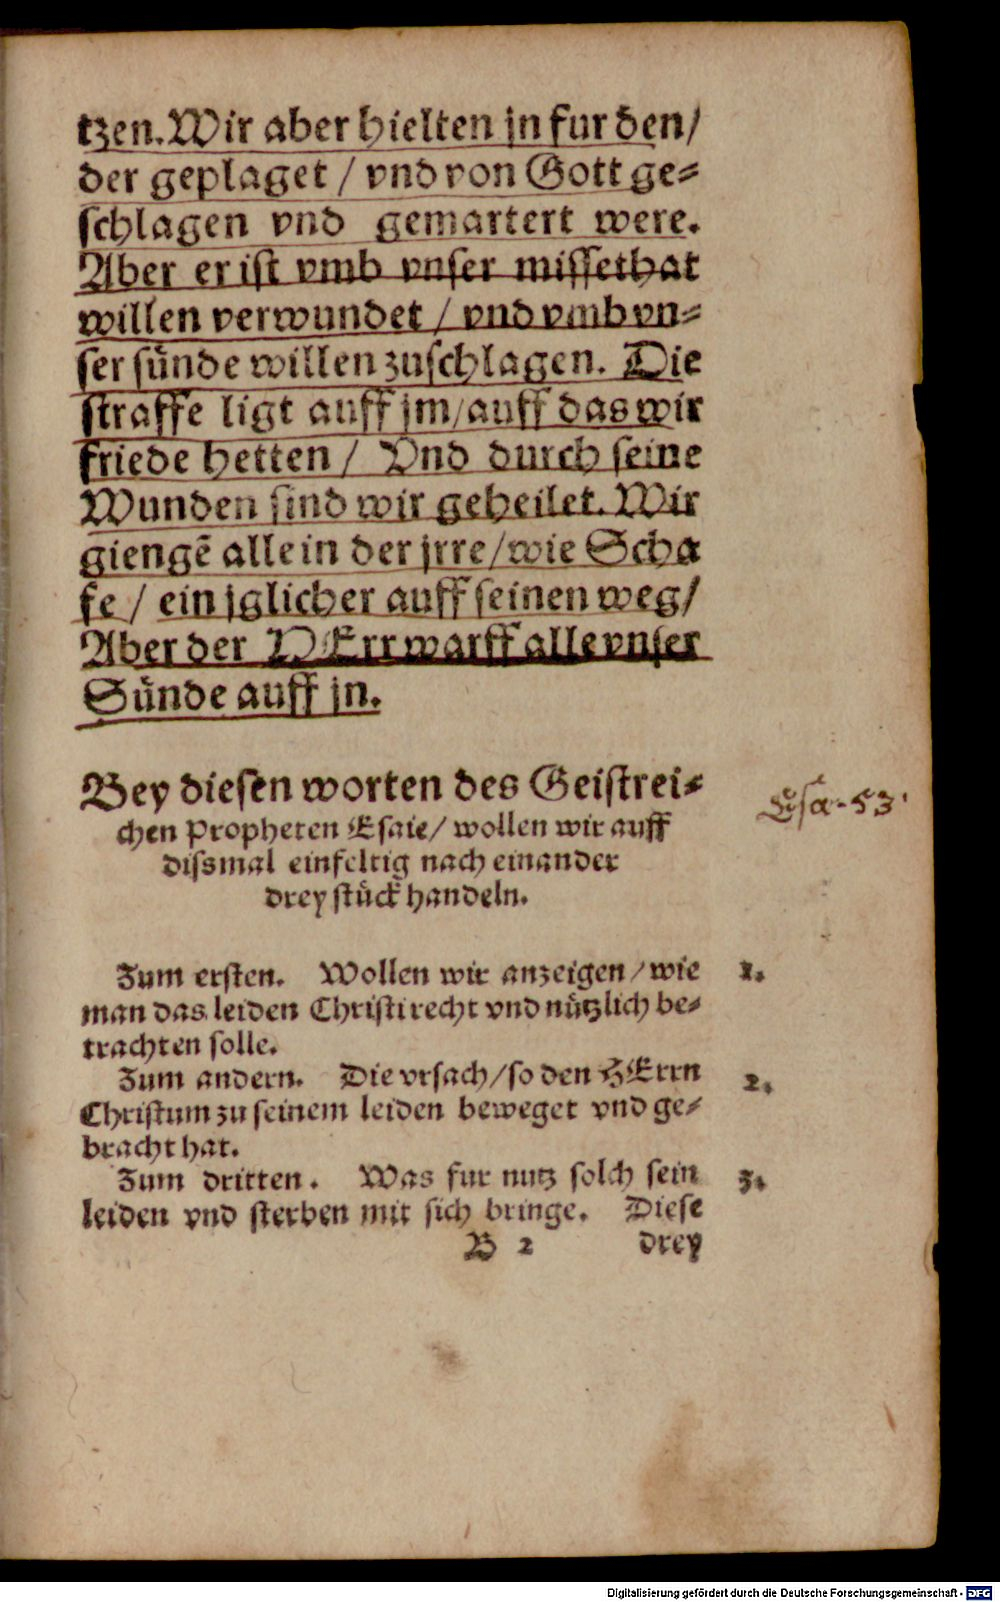 tzen. Wir aber hielten jn fur den/
der geplaget / vnd von Gott ge⸗
ſchlagen vnd gemartert were.
Aber er iſt vmb vnſer miſſethat
willen verwundet / vnd vmb vn⸗
ſer ſuͤnde willen zuſchlagen. Die
ſtraffe ligt auff jm/auff das wir
friede hetten / Vnd durch ſeine
Wunden ſind wir geheilet. Wir
giengē alle in der jrre/wie Scha
fe / ein jglicher auff ſeinen weg/
Aber der HErr warff alle vnſer
Suͤnde auff jn.
Bey dieſen worten des Geiſtrei⸗
chen Propheten Eſaie/ wollen wir auff
diſsmal einfeltig nach einander
drey ſtuͤck handeln.
Eſa. 53
Zum erſten. Wollen wir anzeigen/wie
1.
man das leiden Chriſti recht vnd nuͤtzlich be⸗
trachten ſolle.
Zum andern. Die vrſach/ſo den HErrn
2.
Chriſtum zu ſeinem leiden beweget vnd ge⸗
bracht hat.
Zum dritten. Was fur nutz ſolch ſein
3.
leiden vnd ſterben mit ſich bringe. Dieſe
B 2 drey
Digitalisierung gefördert durch die Deutsche Forschungsgemeinschaft - DFG